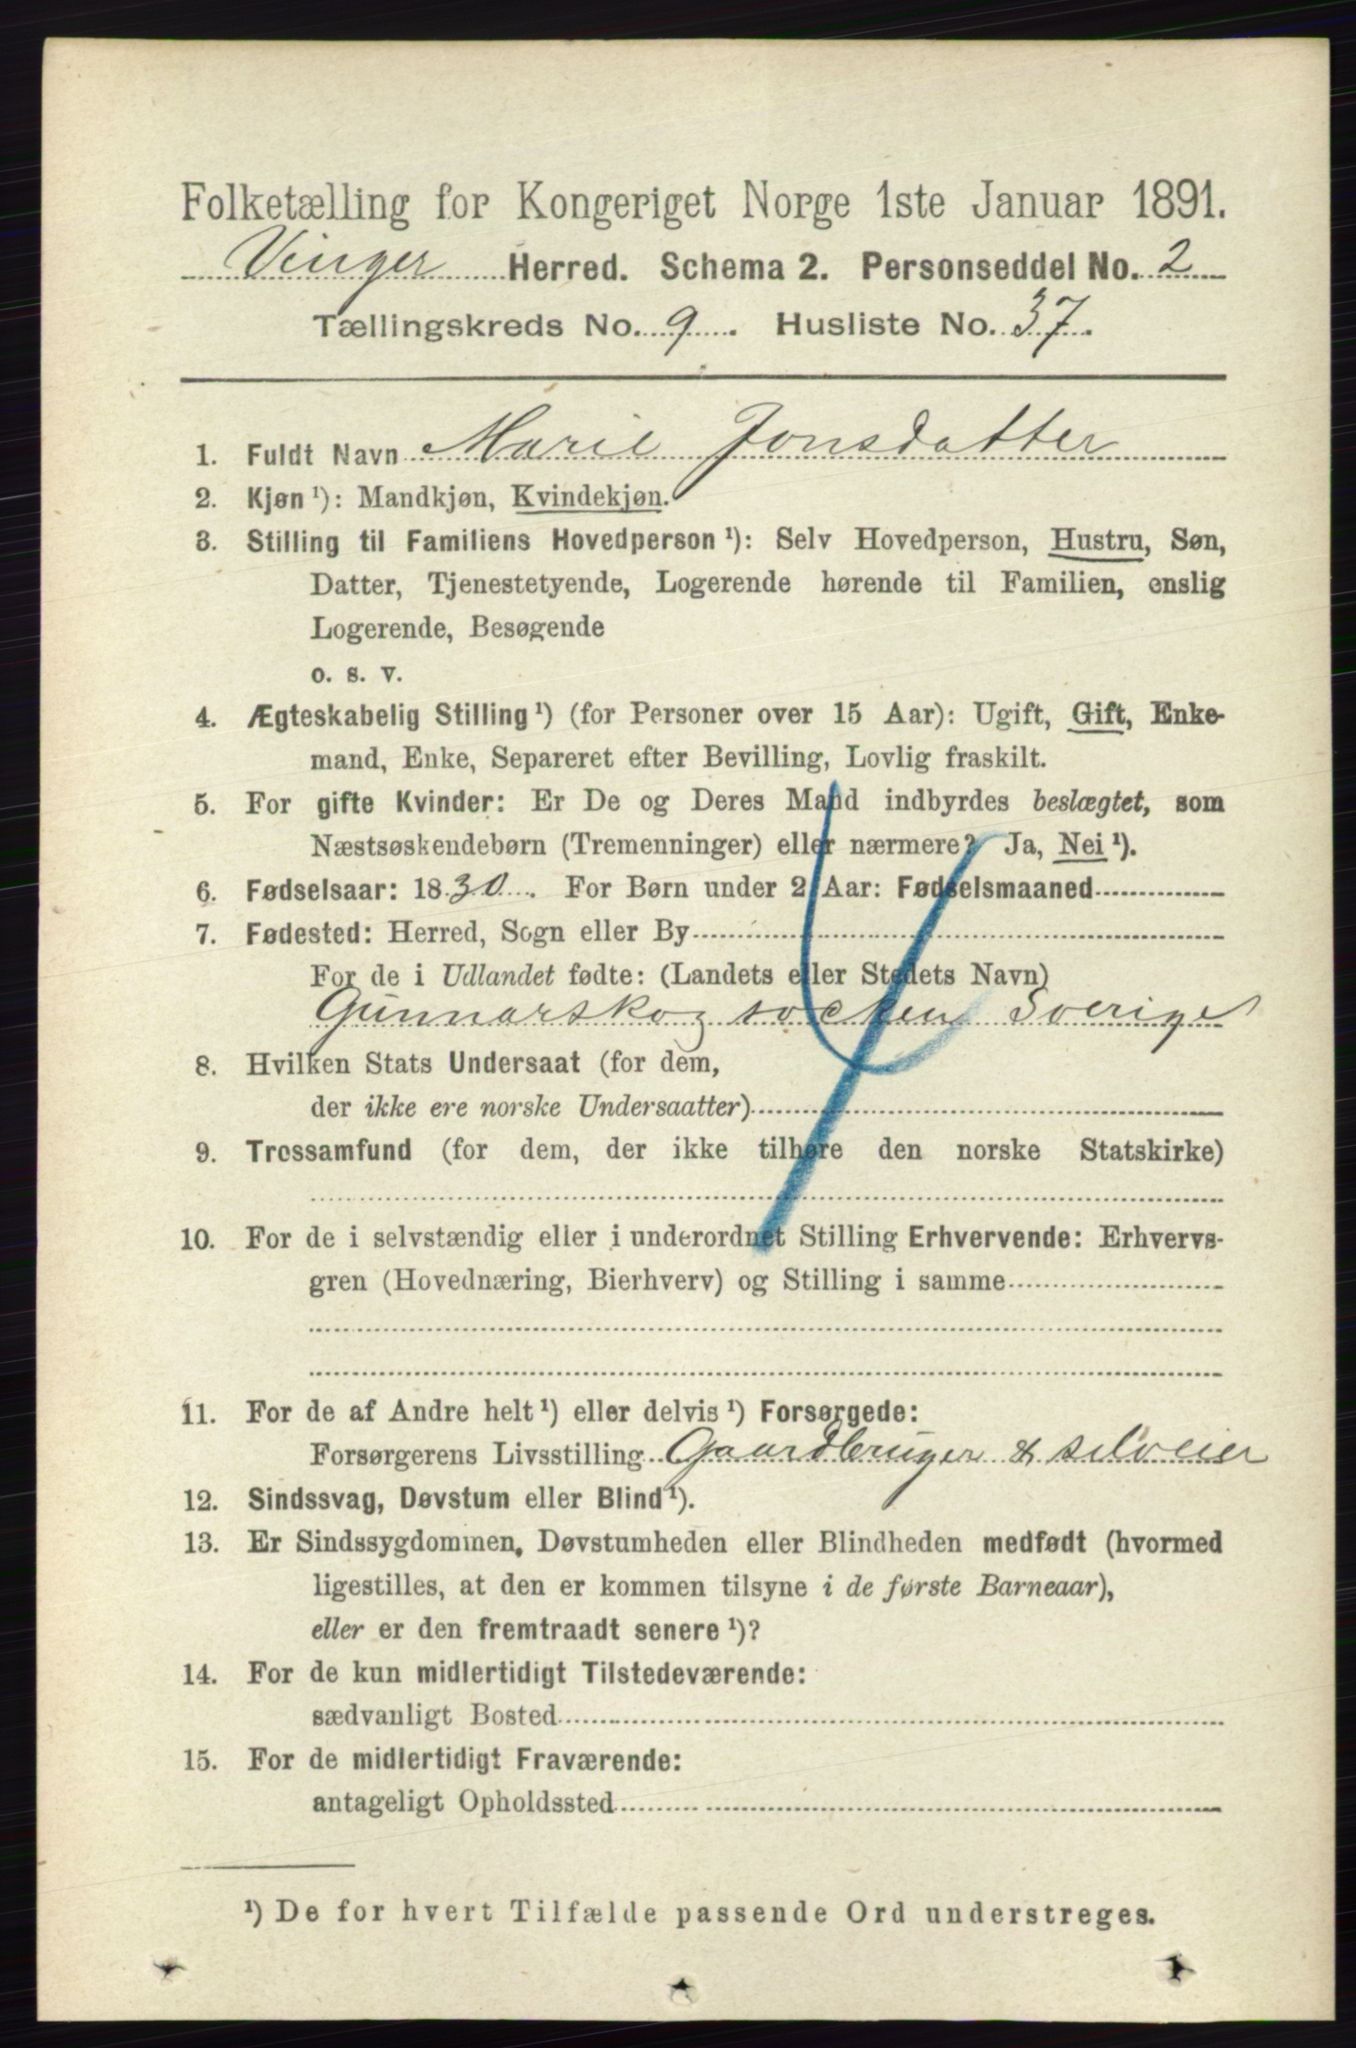 Folketælling for Kongeriget Norge 1ste Januar 1891.
Vinger Herred. Schema 2. Personseddel No. 2
Tællingskreds No. 9. Husliste No. 37.
1. Fuldt Navn Marie Jonsdatter
2. Kjøn ¹): Mandkjøn, Kvindekjøn.
3. Stilling til Familiens Hovedperson ¹): Selv Hovedperson, Hustru, Søn,
Datter, Tjenestetyende, Logerende hørende til Familien, enslig
Logerende, Besøgende
o. s. v.
4. Ægteskabelig Stilling ¹) (for Personer over 15 Aar): Ugift, Gift, Enke-
mand, Enke, Separeret efter Bevilling, Lovlig fraskilt.
5. For gifte Kvinder: Er De og Deres Mand indbyrdes beslægtet, som
Næstsøskendebørn (Tremenninger) eller nærmere? Ja, Nei ¹).
6. Fødselsaar: 1830. For Børn under 2 Aar: Fødselsmaaned
7. Fødested: Herred, Sogn eller By
For de i Udlandet fødte: (Landets eller Stedets Navn)
Gunnarskog socken Sverige
8. Hvilken Stats Undersaat (for dem,
der ikke ere norske Undersaatter)
9. Trossamfund (for dem, der ikke tilhøre den norske Statskirke)
10. For de i selvstændig eller i underordnet Stilling Erhvervende: Erhvervs-
gren (Hovednæring, Bierhverv) og Stilling i samme
11. For de af Andre helt ¹) eller delvis ¹) Forsørgede:
Forsørgerens Livsstilling Gaardbruger & selveier
12. Sindssvag, Døvstum eller Blind ¹).
13. Er Sindssygdommen, Døvstumheden eller Blindheden medfødt (hvormed
ligestilles, at den er kommen tilsyne i de første Barneaar),
eller er den fremtraadt senere ¹)?
14. For de kun midlertidigt Tilstedeværende:
sædvanligt Bosted
15. For de midlertidigt Fraværende:
antageligt Opholdssted
¹) De for hvert Tilfælde passende Ord understreges.